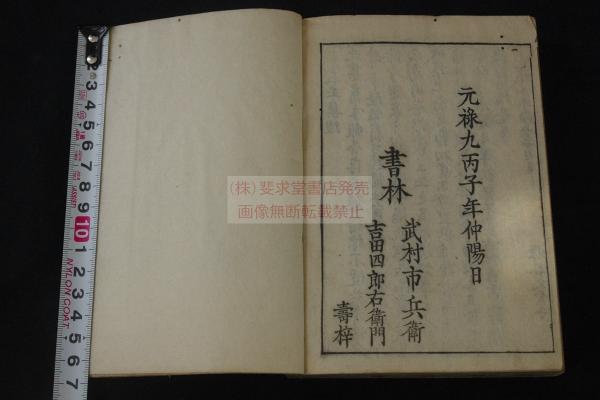 元祿九丙子年仲陽日
書林
武村市兵衛
吉田四郎右衛門
壽梓
(株)斐求堂書店発売
画像無断転載禁止
2
3
4
5
6
7
8
9
10
1
2
3
4
5
6
7
NYLON COAT